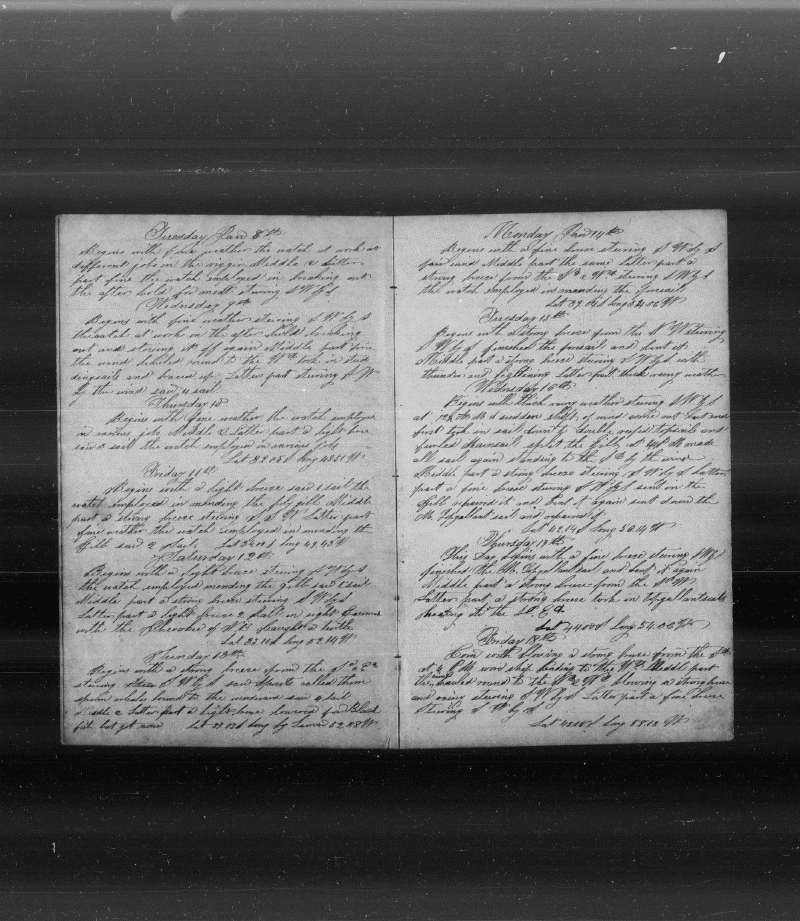 Tuesday Jan 8th
Begins with fine weather the watch at work at
different jobs in the riggin Middle & latter
part fine the watch employed in breaking out
the after hole for molt steering SWbyS
Wednesday 9th
Begins with fine weather steering S W by S
the watch at work in the after hold breaking
out and stowing it off again Middle part fine
the wind hauled round to the Wd took in stud
dingsails and braced up Latter part steering S W
by the wind saw 4 sail
Thursday 10
Begins with fine weather the watch employed
in various jobs Middle & Latter part a light breeze
saw 2 sails the watch employed in various jobs
Lat S Long 48.51 W
Friday 11th
Begins with a light breeze saw 1 sail the
watch employed in mending the jib Middle
part a strong breeze steering S W Latter part
fine weather the watch employed in mending the
saw 2 sail Long 49.43 W
Saturday 12th
Begins with a light breeze steering S W by S
the watch employed mending the saw 1 sail
Middle part a strong breeze steering S W by S
Latter part a light breeze 2 sail in sight
with the Cherokee of N B caught a turtle
Long 52.14 W
Sunday 13th
Begins with a strong breeze from the Sd & Ed
steering S W by S saw called them
sperm whales found to the saw a sail
Middle & latter part a light breeze lowered for Black
fish but got none Lat S Long by Lunar 52.58 W
Monday Jan 14th
Begins with a fine breeze steering S W by S
fair and Middle part the same Latter part a
strong breeze from the Nd & Wd steering S W by S
the watch employed in mending the foresail
Lat 39. S Long W
Tuesday 15th
Begins with a strong breeze from the N W steering
S W by S finished the foresail and bent it
Middle part a strong breeze steering S W by S with
thunder and lightening latter part thick rainy weather
Wednesday 16th
Begins with thick rainy weather steering S W by S
at M a sudden shift of wind come out
first took in sail double reefed topsails and
furled mainsail split the jib at 4 P M made
all sail again standing to the Sd by the wind
Middle part a strong breeze steering S W by S Latter
part a fine breeze steering S W by S sent in the
jib repaired it and bent it again sent down the
M Topgallant sail and repaired it
Lat 42.14 S Long 53.14 W
Thursday 17th
This Day begins with a fine breeze steering SWbyS
finished the M. Topgallantsail and bent it again
Middle part a strong breeze from the N W
Latter part a strong breeze took in topgallantsails
heading to the Sd Ed
Lat 44.00 S Long 54.00 W
Friday 18th
Com with blowing a strong breeze from the Sd
at 4 P M wore ship heading to the Wd Middle part
the wind hauled round to the Nd & Wd blowing a strong breeze
and rainy steering S W by S Latter part a fine breeze
steering S W by S
Lat S Long 55.13 W